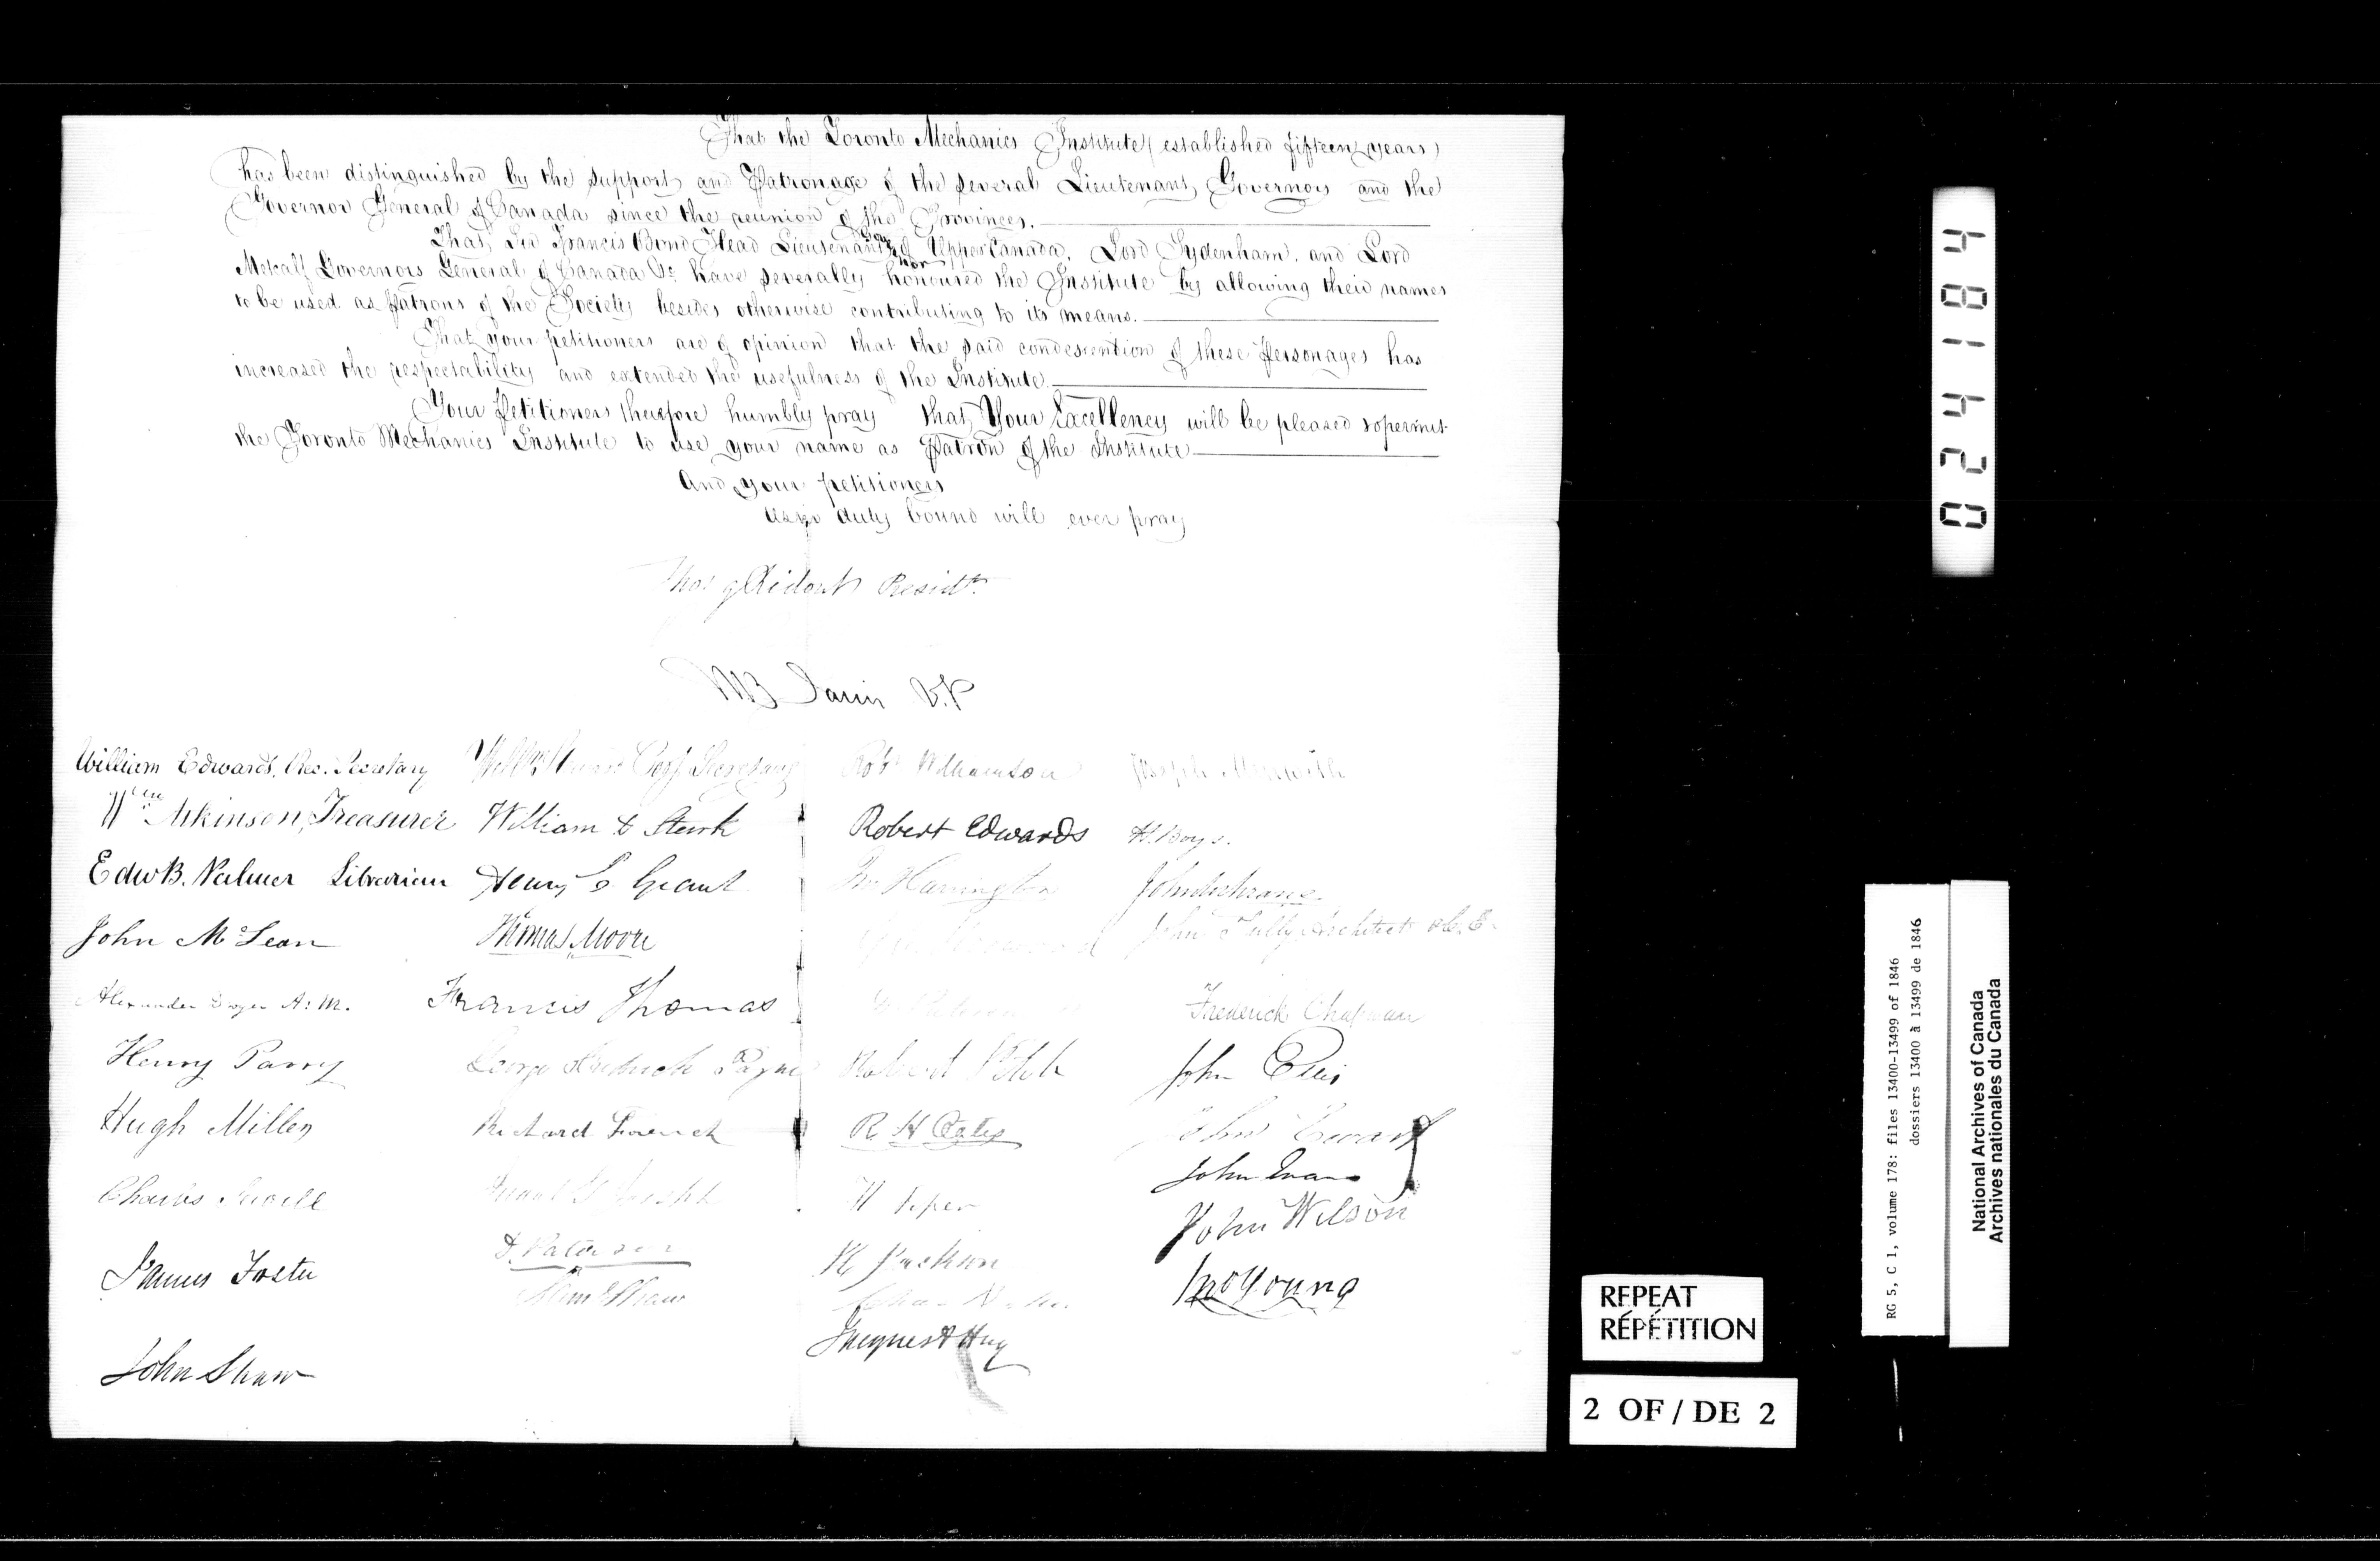 That the Toronto Mechanics Institute (established fifteen years)
has been distinguished by the support and Patronage of the several Lieutenant Governors and the
Governor General of Canada since the reunion of the Provinces.
That Sir Francis Bond Head Lieutenant Governor of Upper Canada, Lord Sydenham, and Lord
Metcalf Governors General of Canada &c have severally honoured the Institute by allowing their names
to be used as Patrons of the Society besides otherwise contributing to its means.
That your petitioners are of opinion that the said condescention of these Personages has
increased the respectability and extended the usefulness of the Institute.
Your Petitioners therefore humbly pray that Your Excellency will be pleased to permit
the Toronto Mechanics Institute to use your name as Patron of the Institute
And your petitioners
as in duty bound will ever pray
Thos G Ridout Presidt.
V.P
William Edwards, Rec. Secretary
Wm Atkinson, Treasurer
Edw B. Palmer Librarian
John McLean
Alexander Dwyer A: M.
Henry Parry
Hugh Miller
Charles
James Foster
John Shaw
Corrg Secretary
William Stark
Henry Grant
Thomas Moore
Francis Thomas
George Frederick Payne
Richard
D. Paterson
Shaw
Robt Williamson
Robert Edwards
Harrington
Robert
R H Oates
H Piper
Jackson
Jacques & Hay
Joseph
H. Boys.
John Cochrane.
John Tully Architect & C. E.
Frederick Chapman
John Ellis
John Ewart
John Evans
John Wilson
Jno Young
0241184
RG 5, C 1, volume 178: files 13400-13499 of 1846
dossiers 13400 à 13499 de 1846
National Archives of Canada
Archives nationales du Canada
REPEAT
RÉPÉTITION
2 OF / DE 2